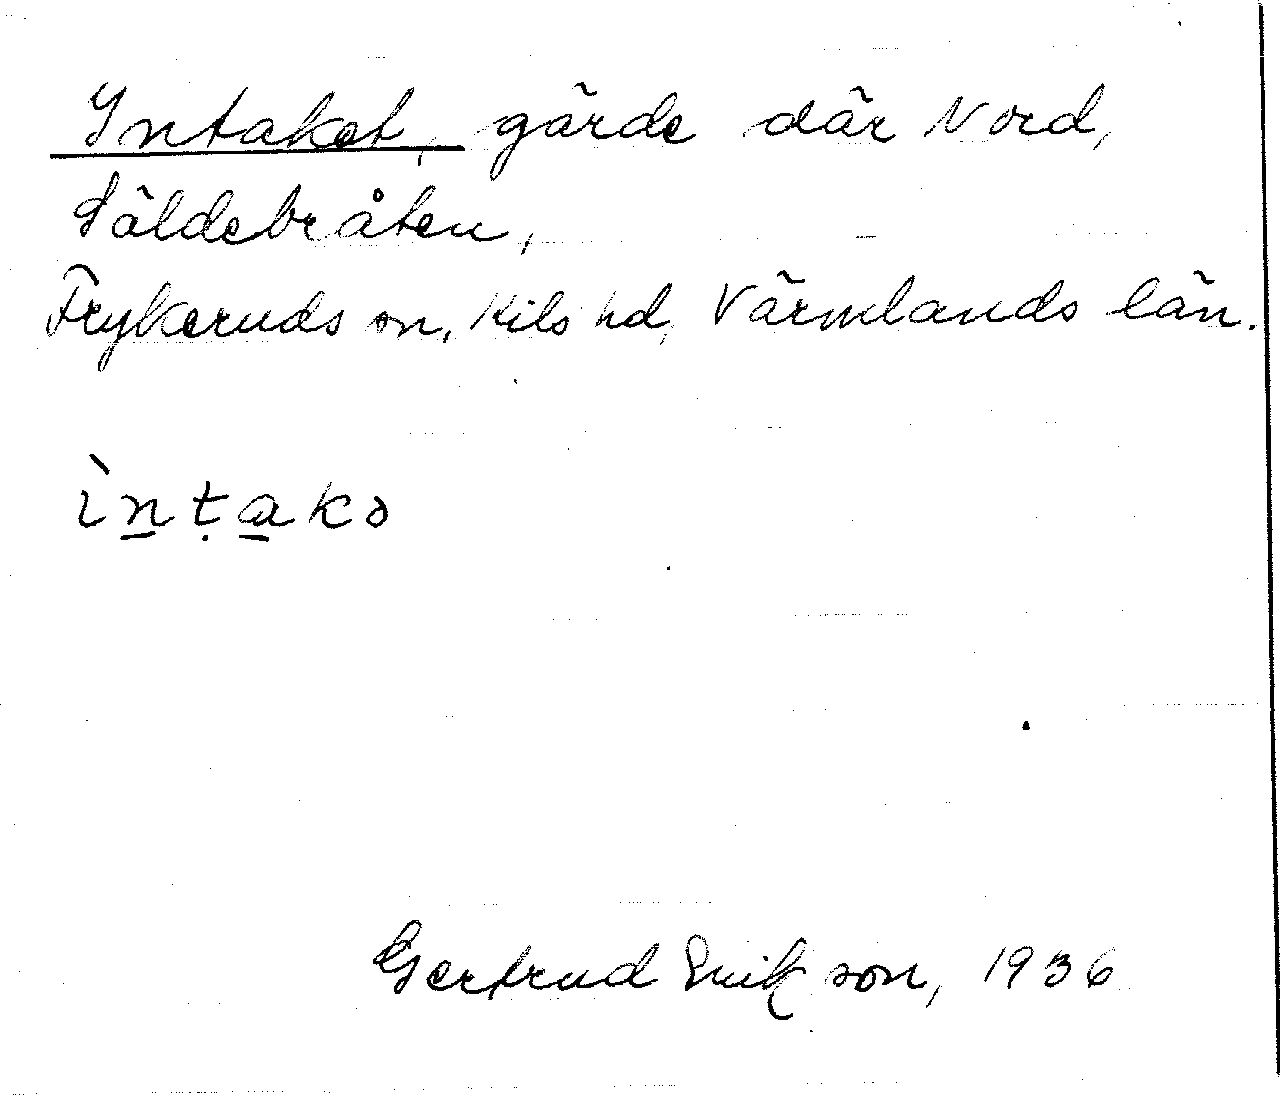 Intaket, gärde där Nord,
Säldebråten,
Frykeruds sn, Kils hd, Värmlands län.
ìn̲ṭa̲kə
Gertrud Erikson, 1936